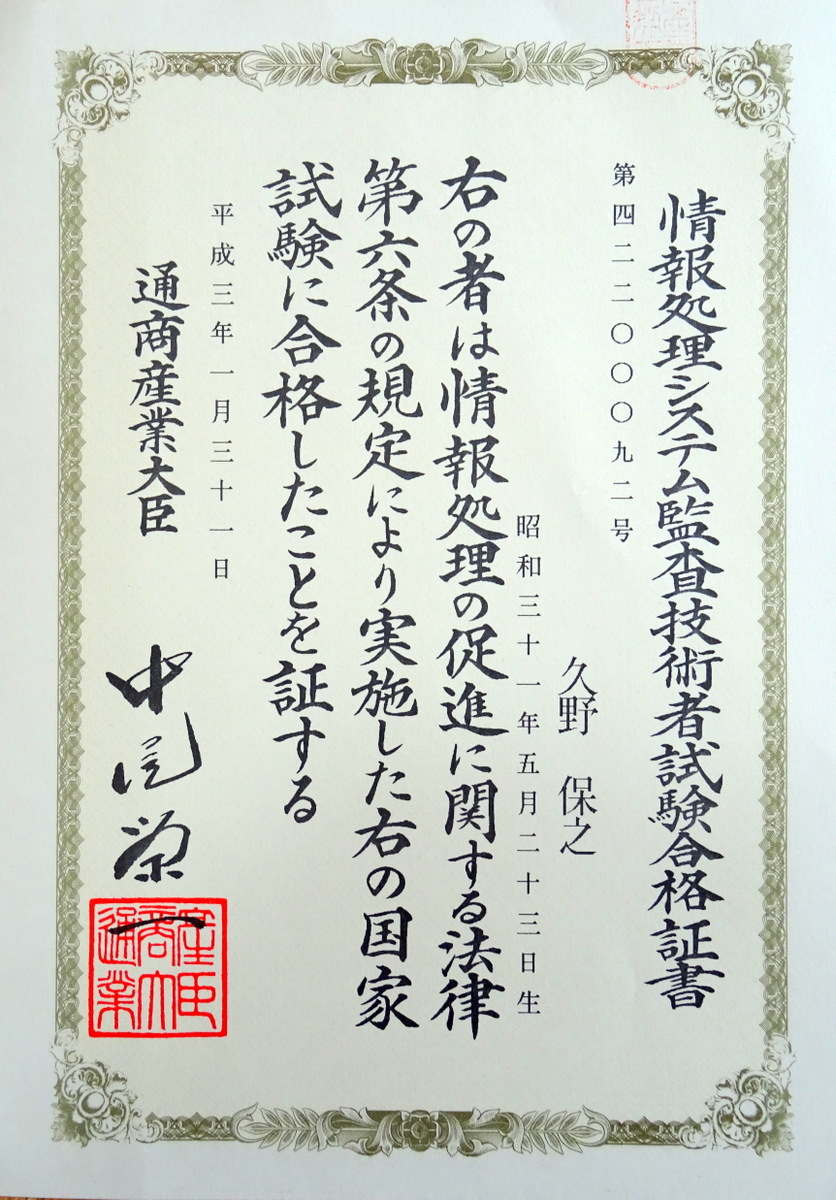 情報処理システム監査技術者試験合格証書
第四二二〇〇〇九二号
久野 保之
昭和三十一年五月二十三日生
右の者は情報処理の促進に関する法律
第六条の規定により実施した右の国家
試験に合格したことを証する
平成三年一月三十一日
通商産業大臣
中尾栄一
通商産業大臣